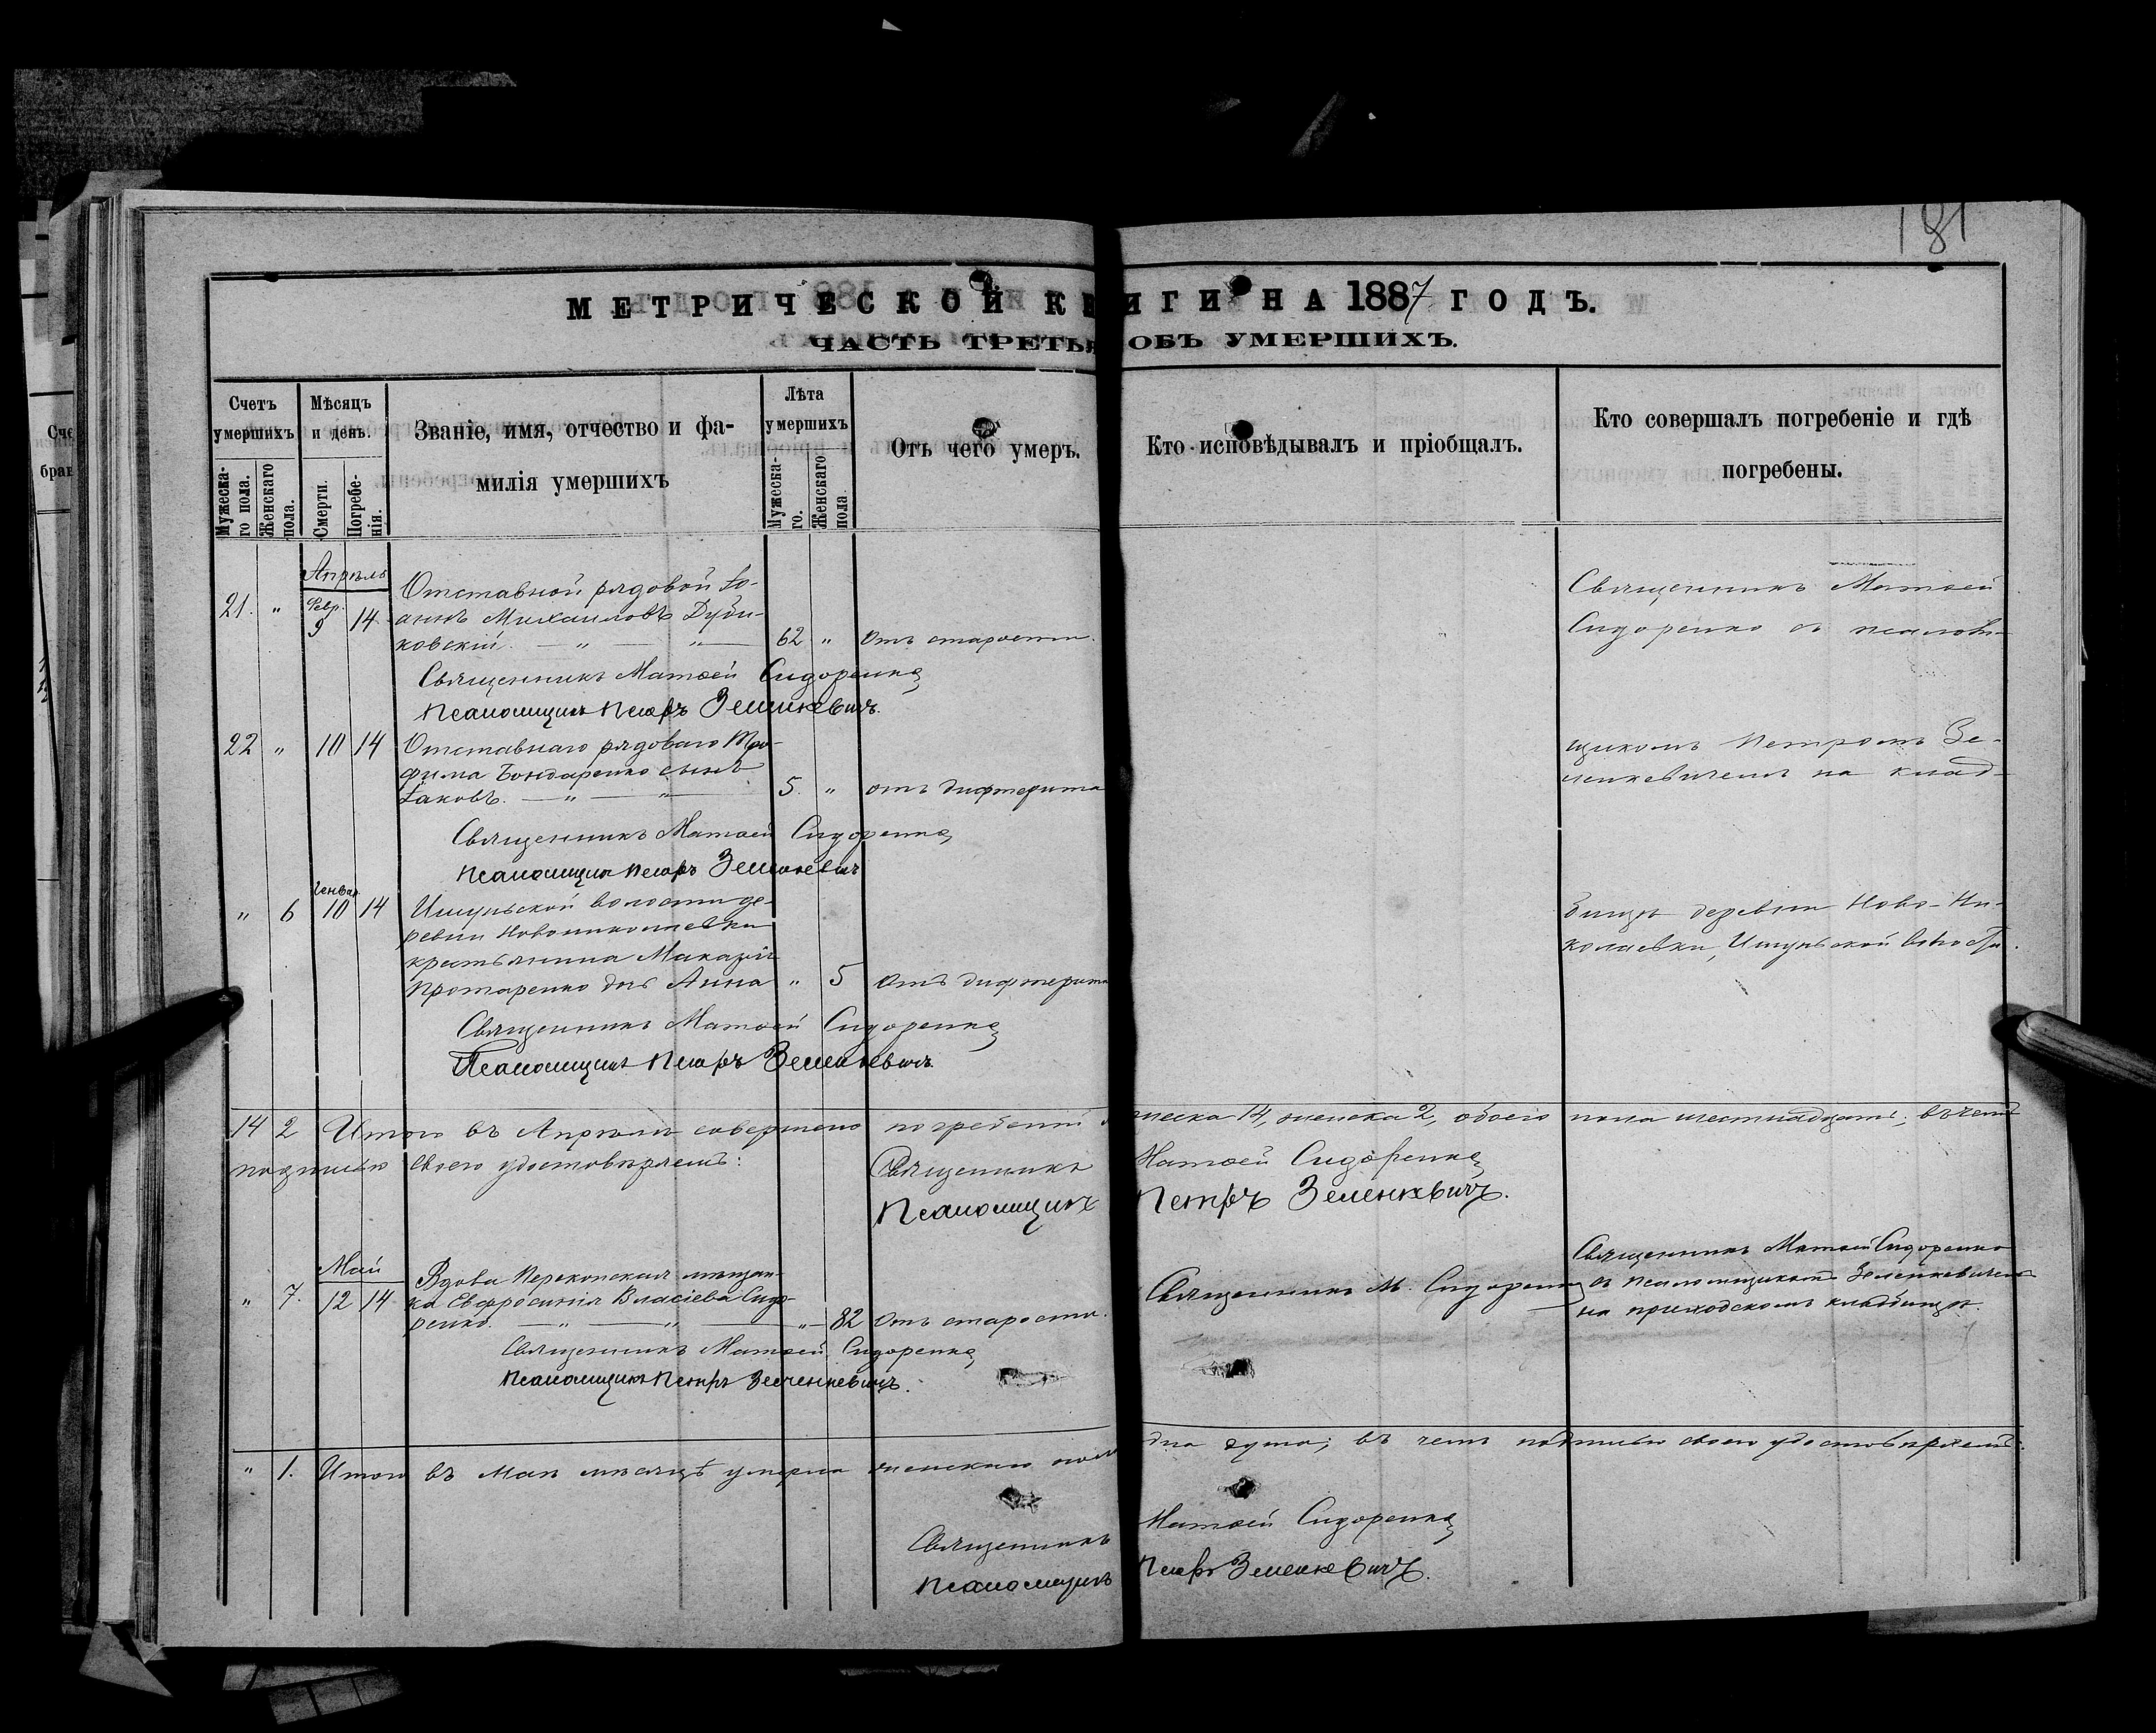 181
МЕТРИЧЕСКОЙ КНИГИ НА 1887 ГОДЪ.
ЧАСТЬ ТРЕТЬЯ ОБЪ УМЕРШИХЪ.
Счетъ умершихъ
Мужеска-го пола.
Женскаго пола.
Мѣсяцъ и день.
Смерти.
Погребе-нія.
Званіе, имя, отчество и фа-
милія умершихъ
Лѣта умершихъ
Мужеска-го.
Женскаго пола
Отъ чего умеръ.
Кто исповѣдывалъ и пріобщалъ.
Кто совершалъ погребеніе и гдѣ
погребены.
Апрѣль
21. " Февр. 9 14
Отставной рядовой Іо-
аннъ Михаиловъ Дуби-
ковскій. — " — " — 62 " Отъ старости.
Священникъ Матѳей
Сидоренко съ псаломщ-
Священникъ Матѳей Сидоренко
Псаломщикъ Петръ Зеленкевичъ.
22 " 10 14 Отставнаго рядоваго Тро-
фима Бондаренко сынъ
Іаковъ. — " — " — 5. " отъ дифтерита
щикомъ Петромъ Зе-
ленкевичемъ на клад-
Священникъ Матѳей Сидоренко
Псаломщикъ Петръ Зеленкевичъ
" 6 Генвар. 10 14 Ишуньской волости де-
ревни Новониколаевки
крестьянина Макарія
Протаренко дочь Анна " 5 отъ дифтерита
бищѣ деревни Ново-Ни-
колаевки, Ишуньской волости.
Священникъ Матѳей Сидоренко
Псаломщикъ Петръ Зеленкевичъ.
14 2 Итого въ Апрѣлѣ совершено погребеній мужеска 14, женска 2, обоего пола шестнадцать; въ чемъ
подписью своею удостовѣряемъ:
Священникъ Матѳей Сидоренко
Псаломщикъ Петръ Зеленкевичъ.
Май
" 7. 12 14 Вдова Перекопская мѣщан-
ка Евфросинія Власіева Сидо-
ренко. — " — " — " — 82 Отъ старости.
Священникъ М. Сидоренко
Священникъ Матѳей Сидоренко
съ псаломщикомъ Зеленкевичемъ
на приходскомъ кладбищѣ.
Священникъ Матѳей Сидоренко
Псаломщикъ Петръ Зеленкевичъ.
" 1. Итого въ Маѣ мѣсяцѣ умерла женскаго пола одна душа; въ чемъ подписью своею удостовѣряемъ:
Священникъ Матѳей Сидоренко
Псаломщикъ Петръ Зеленкевичъ.